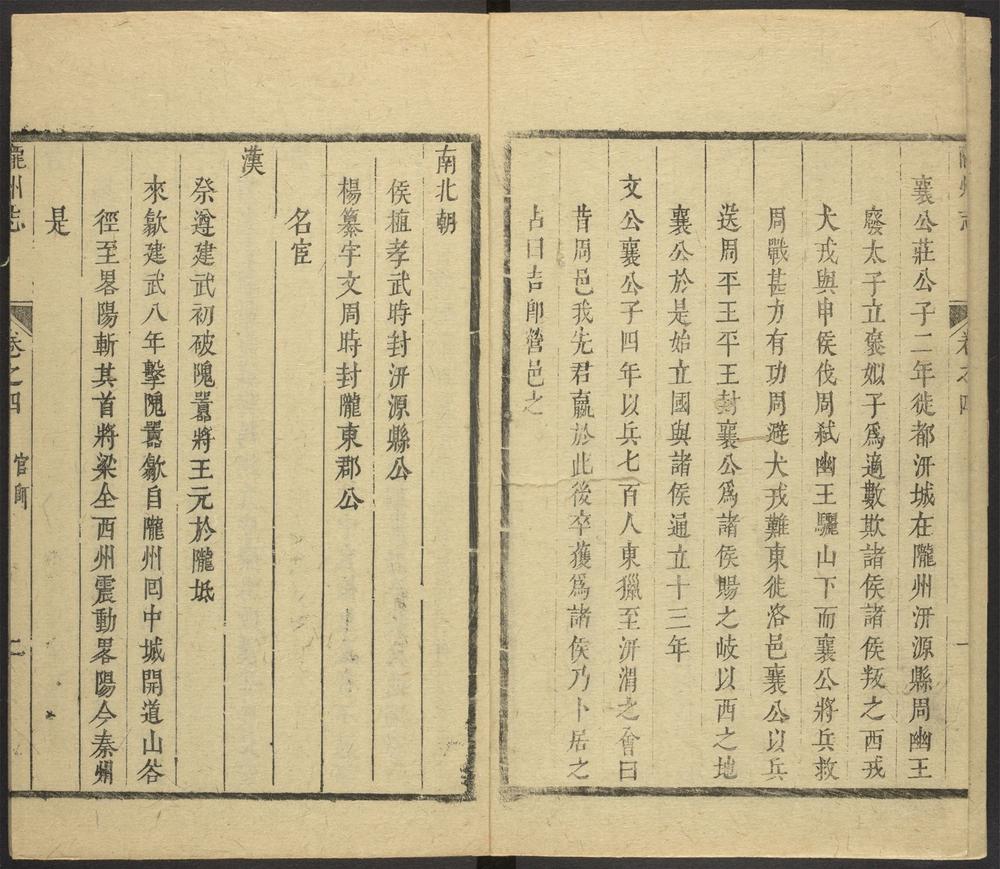 隴州志
卷之四
一
襄公莊公子二年徙都汧城在隴州汧源縣周幽王
廢太子立褒姒子爲適數欺諸侯諸侯叛之西戎
犬戎與申侯伐周弒幽王驪山下而襄公將兵救
周戰甚力有功周避犬戎難東徙洛邑襄公以兵
送周平王平王封襄公爲諸侯賜之岐以西之地
襄公於是始立國與諸侯通立十三年
文公襄公子四年以兵七百人東獵至汧渭之會曰
昔周邑我先君嬴於此後卒獲爲諸侯乃卜居之
占曰吉卽營邑之
南北朝
侯植孝武時封汧源縣公
楊纂宇文周時封隴東郡公
名宦
漢
祭遵建武初破隗囂將王元於隴坻
來歙建武八年擊隗囂歙自隴州囘中城開道山谷
徑至畧陽斬其首將梁仝西州震動畧陽今秦州
是
隴州志
卷之四
官師
二